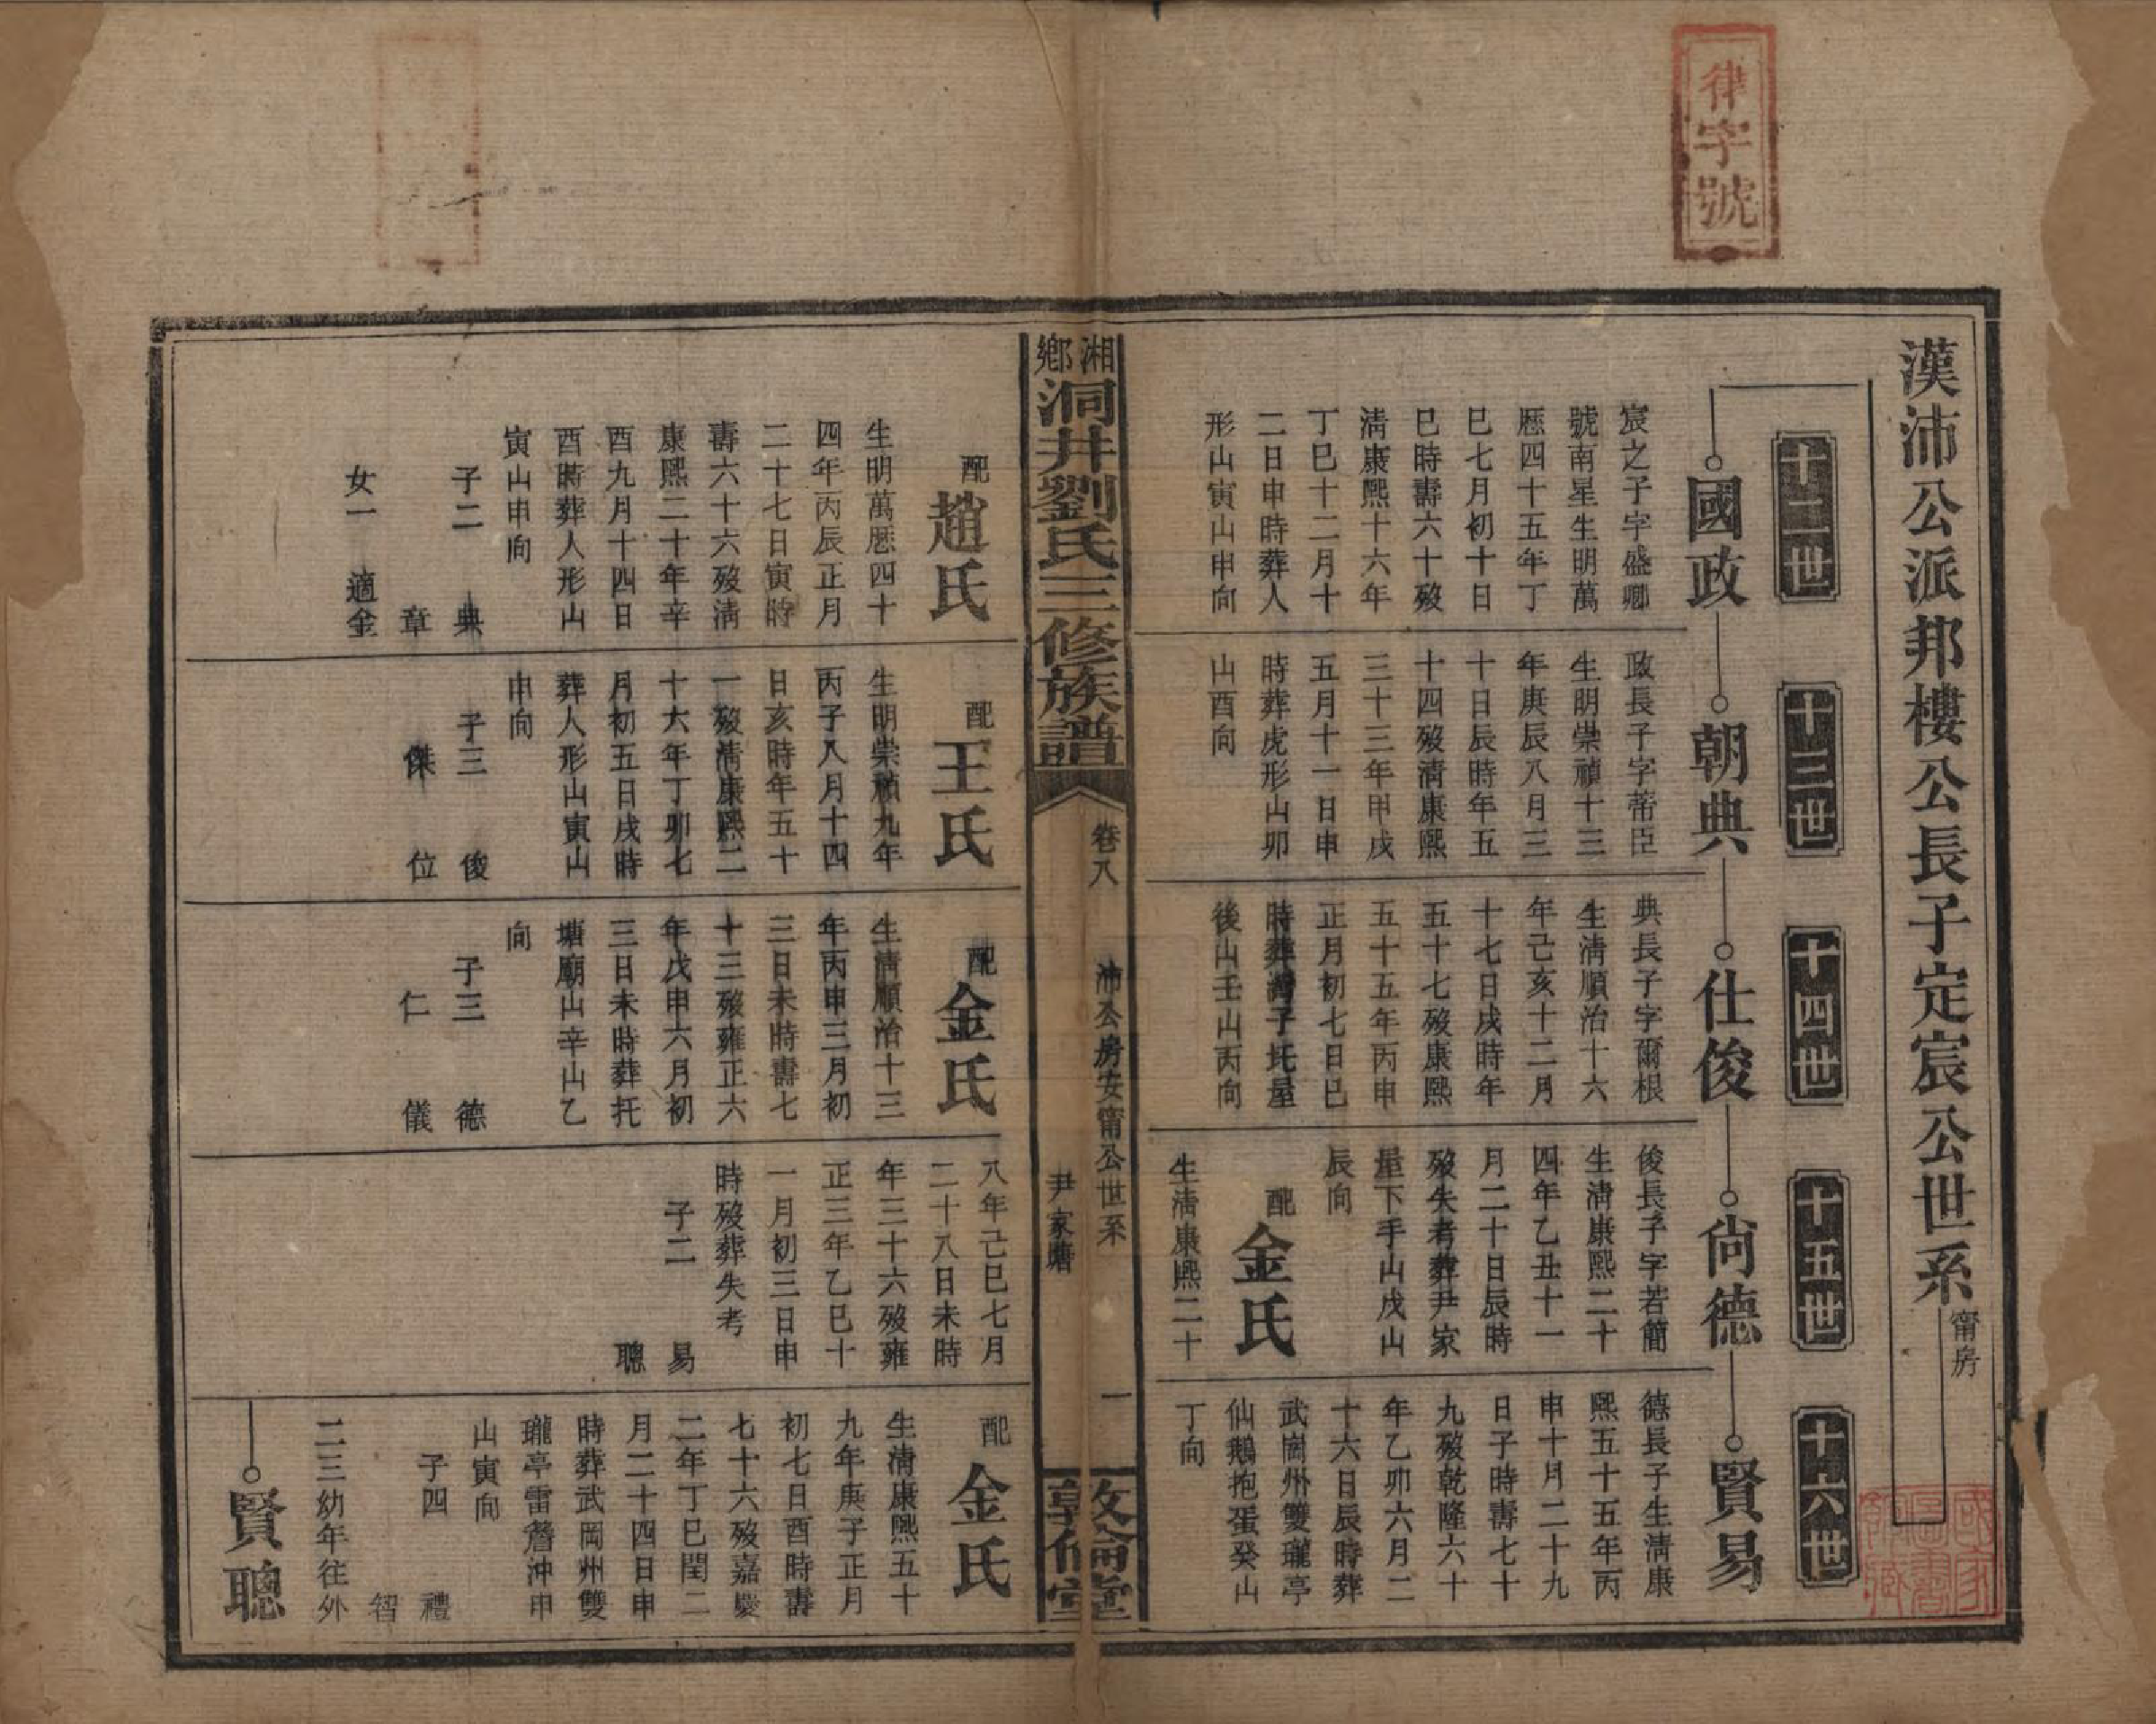 律字號
漢沛公派邦樓公長子定宸公世系
甯房
十二世
十三世
十四世
十五世
十六世
國政
宸之子字盛卿
號南星生明萬
歷四十五年丁
巳七月初十日
巳時壽六十歿
清康熙十六年
丁巳十二月十
二日申時葬人
形山寅山申向
朝典
政長子字蒂臣
生明崇禎十三
年庚辰八月三
十日辰時年五
十四歿清康熙
三十三年甲戌
五月十一日申
時葬虎形山卯
山酉向
仕俊
典長子字爾根
生清順治十六
年己亥十二月
十七日戌時年
五十七歿康熙
五十五年丙申
正月初七日巳
時葬灣子圫屋
後山壬山丙向
尙德
俊長子字若簡
生清康熙二十
四年乙丑十一
月二十日辰時
歿失考葬尹家
屋下手山戌山
辰向
配
金氏
生清康熙二十
賢易
德長子生清康
熙五十五年丙
申十月二十九
日子時壽七十
九歿乾隆六十
年乙卯六月二
十六日辰時葬
武岡州雙瓏亭
仙鵝抱蛋癸山
丁向
湘鄉洞井劉氏三修族譜
卷八
沛公房安甯公世系
尹家塘
一
敦倫堂
配
趙氏
生明萬歷四十
四年丙辰正月
二十七日寅時
壽六十六歿清
康熙二十年辛
酉九月十四日
酉時葬人形山
寅山申向
子二
典
章
女一
適金
配
王氏
生明崇禎九年
丙子八月十四
日亥時年五十
一歿清康熙二
十六年丁卯七
月初五日戌時
葬人形山寅山
申向
子三
俊
傑
位
配
金氏
生清順治十三
年丙申三月初
三日未時壽七
十三歿雍正六
年戊申六月初
三日未時葬托
塘廟山辛山乙
向
子三
德
仁
儀
八年己巳七月
二十八日未時
年三十六歿雍
正三年乙巳十
一月初三日申
時歿葬失考
子二
易
聰
配
金氏
生清康熙五十
九年庚子正月
初七日酉時壽
七十六歿嘉慶
二年丁巳閏二
月二十四日申
時葬武岡州雙
瓏亭雷詹沖申
山寅向
子四
禮
智
二三幼年往外
賢聰
國家圖書館藏